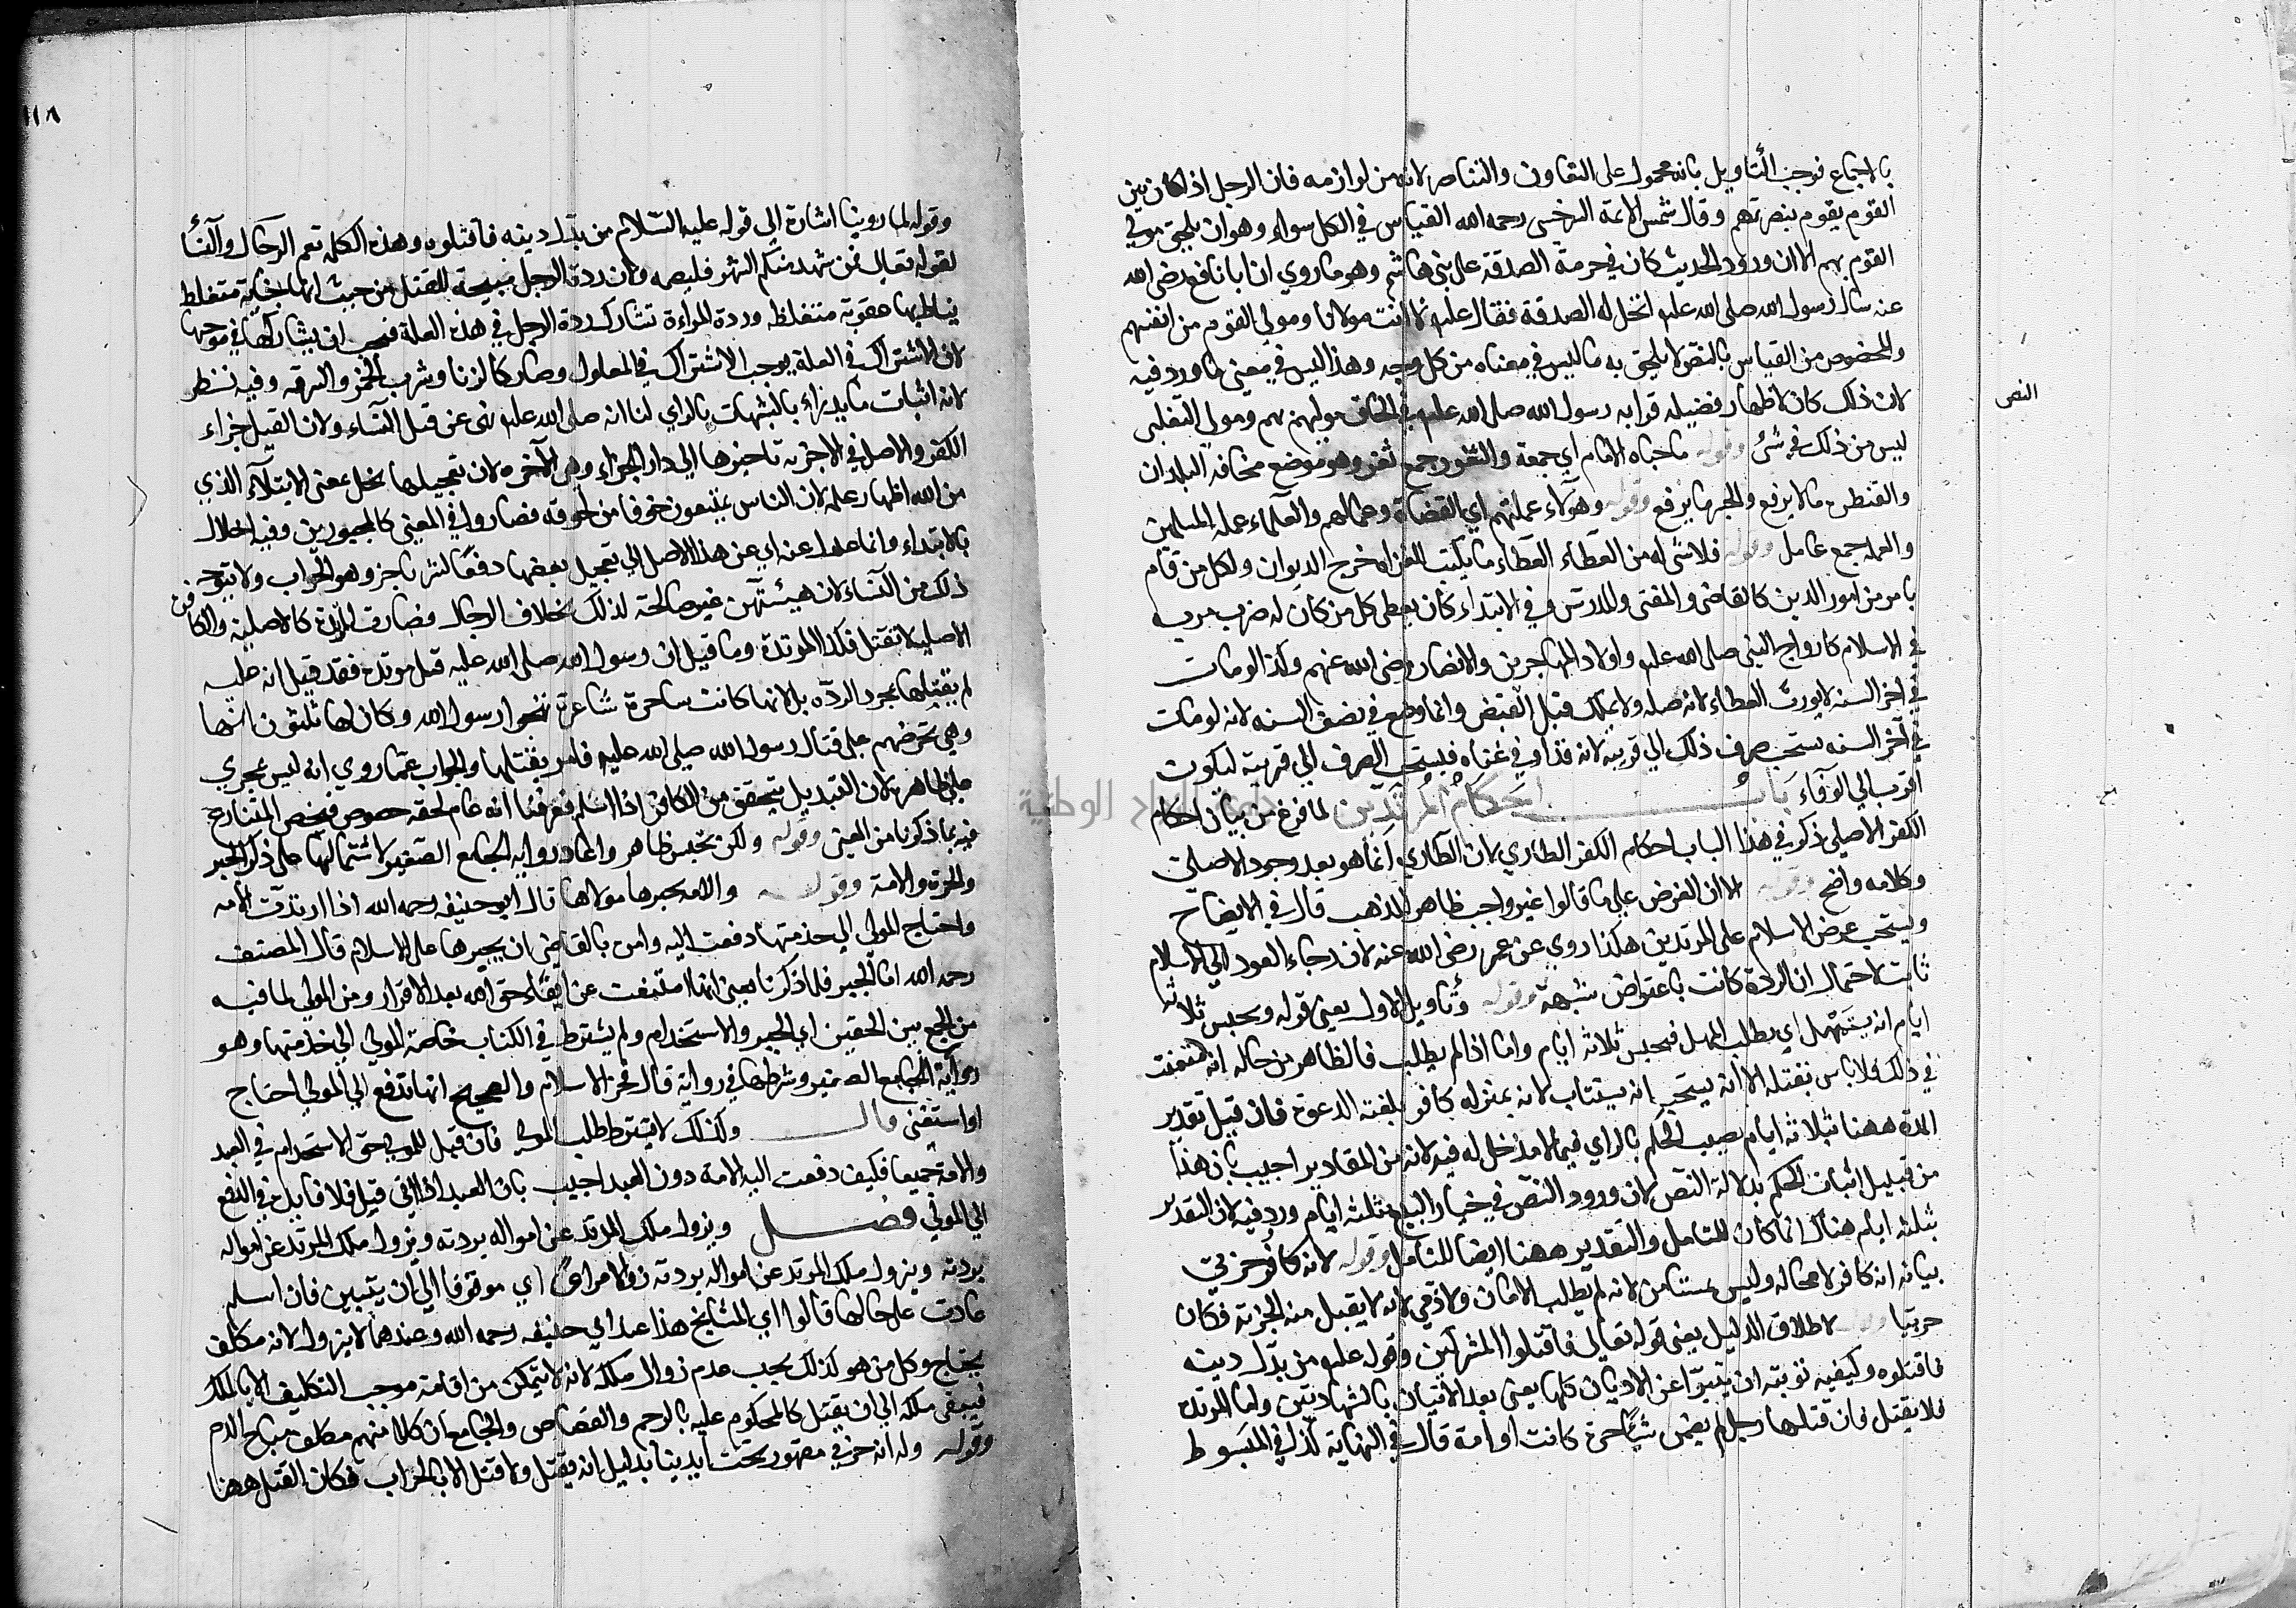 بالاجماع فوجب التأويل بانه محمول على التعاون والتناصر لانه من لوازمه فان الرجل اذا كان بين
القوم يقوم بنصرتهم وقال شمس الائمة السرخسي رحمه الله القياس في الكل سواء وهو ان يلحق مولى
القوم بهم الا ان ورود الحديث كان في حرمة الصدقة على بني هاشم وهو ما روي ان ابا نافع رضي الله
عنه سال رسول الله صلى الله عليه اتحل له الصدقة فقال عليه لا انت مولانا ومولى القوم من انفسهم
والمخصوص من القياس بالنص لا يلحق به ما ليس في معناه من كل وجه وهذا ليس في معنى ما ورد فيه
النص
لان ذلك كان لاظهار فضيله قرابه رسول الله صلى الله عليه في الحاق موليهم بهم ومولى التغلبي
ليس من ذلك في شئ وقوله ما جباه الامام اي جمعه والثغور جمع ثغر وهو موضع مخافة البلدان
والقنطرة ما لا يرفع والجسر ما يرفع وقوله وهؤلاء عملتهم اي القضاة وعمالهم والعلماء عملة المسلمين
والعملة جمع عامل وقوله فلا شئ له من العطاء العطاء ما يكتب للغزاه خرج الديوان ولكل من قام
بامر من امور الدين كالقاضي والمفتي والمدرس وفي الابتداء كان يعطى كل من كان له ضرب مزية
في الاسلام كازواج النبي صلى الله عليه واولاد المهاجرين والانصار رضي الله عنهم وكذا لو مات
في اخر السنه لا يورث العطاء لانه صله ولا يملك قبل القبض وانما وضع في نصف السنه لانه لو مات
في آخر السنه يستحب صرف ذلك الى قريبه لانه قد اوفى عناه فيستحب الصرف الى قريبه ليكون
اقرب الى الوفاء باب احكام المرتدين لما فرغ من بيان احكام
الكفر الاصلي ذكر في هذا الباب احكام الكفر الطاري لان الطاري انما هو بعد وجود الاصلي
وكلامه واضح وقوله الا ان العرض على ما قالوا غير واجب ظاهر المذهب قال في الايضاح
ويستحب عرض الاسلام على المرتدين هكذا روي عن عمر رضي الله عنه لان رجاء العود الى الاسلام
ثابت لاحتمال ان الردة كانت باعتراض شبهة وقوله وتأويل الاول يعني قوله ويحبس ثلاثة
ايام انه يستمهل اي يطلب المهل فيحبس ثلاثة ايام واما اذا لم يطلب فالظاهر من حاله انه متعنت
في ذلك فلا باس بقتله الا انه يستحب انه يستتاب لانه بمنزلة كافر بلغته الدعوة فان قيل تقدير
المدة ههنا بثلاثة ايام نصب الحكم بالراي فيما لا مدخل له فيه لانه من المقادير اجيب بان هذا
من قبيل اثبات الحكم بدلالة النص لان ورود النص في خيار البيع بثلثه ايام ورد فيه لان التقدير
بثلثه ايام هناك انما كان للتامل والتقدير ههنا ايضا للتامل وقوله لانه كافر حربي
بيانه انه كافر لا محاله وليس بمستامن لانه لم يطلب الامان ولا ذمي لانه لا يقبل منه الجزية فكان
حربيا وقوله لاطلاق الدليل يعني قوله تعالى فاقتلوا المشركين وقوله عليه من بدل دينه
فاقتلوه وكيفيه توبته ان يتبرأ عن الاديان كلها يعني بعد الاتيان بالشهادتين واما المرتدة
فلا يقتل فان قتلها رجل لم يضمن شيئا حرة كانت او امة قال في النهاية كذا في المبسوط
١١٨
وقوله لما روينا اشارة الى قوله عليه السلام من بدل دينه فاقتلوه وهذه الكلمة تعم الرجال والنساء
لقوله تعالى فمن شهد منكم الشهر فليصمه ولان ردة الرجل مبيحة للقتل من حيث انها جناية متغلظة
يناط بها عقوبة متغلظة وردة المرأة تشارك ردة الرجل في هذه العلة فيجب ان يشاركها في موجبها
لان الاشتراك في العلة يوجب الاشتراك في المعلول وصار كالزنا وشرب الخمر والسرقه وفيه نظر
لانه اثبات ما يدرأ بالشبهات بالراي لنا انه صلى الله عليه نهى عن قتل النساء ولان القتل جزاء
الكفر والاصل في الاجزيه تاخيرها الى دار الجزاء وهي الآخره لان تعجيلها يخل بمعنى الابتلاء الذي
من الله اظهار علمه لان الناس يمتنعون خوفا من لحوقه فصاروا في المعنى كالمجبورين وفيه اخلال
بالابتداء وانما عدل عنه اي عن هذا الاصل الى تعجيل بعضها دفعا لشر ناجز وهو الحراب ولا يتوجه
ذلك من النساء لان هيئتهن غير صالحة لذلك بخلاف الرجال فصارت المرتدة كالاصلية والكافرة
الاصلية لا تقتل فكذا المرتدة وما قيل ان رسول الله صلى الله عليه قتل مرتدة فقد قيل انه عليه
لم يقتلها بمجرد الردة بل لانها كانت ساحرة شاعرة تهجوا رسول الله وكان لها ثلثون ابنها
وهي تحرضهم على قتال رسول الله صلى الله عليه فامر بقتلها والجواب عما روي انه ليس بمجرى
على ظاهره لان التبديل يتحقق من الكافر اذا اسلم فعرفنا انه عام لحقه خصوص فيخص المتنازع
فيه بما ذكرنا من المعنى وقوله ولكن تحبس ظاهر وانما رد رواية الجامع الصغير لاشتمالها على ذكر الجبر
والحرة والامة وقوله والامة يجبرها مولاها قال ابو حنيفه رحمه الله اذا ارتدت الامة
واحتاج المولى الى خدمتها دفعت اليه وامر بالقاضي ان يجبرها على الاسلام قال المصنف
رحمه الله اما الجبر فلما ذكرنا يعني انها امتنعت عن ايفاء حق الله بعد الاقرار ومن المولى لما فيه
من الجمع بين الحقين اي الجبر والاستخدام ولم يشترط في الكتاب خاصة المولى الى خدمتها وهو
رواية الجامع الصغير وشرطها في رواية قال فخر الاسلام والصحيح انها تدفع الى المولى احتاج
او استغنى قال وكذلك لا يشترط طلب المولى فان قيل للمولى حق الاستخدام في العبد
والامة جميعا فكيف دفعت اليه الامة دون العبد اجيب بان العبد اذا ابى قتل فلا فايدة في الدفع
الى المولى فصل ويزول ملك المرتد عن امواله بردته ويزول ملك المرتد عن امواله
بردته ويزول ملك المرتد عن امواله بردته زوالا مراعى اي موقوفا الى ان يتبين فان اسلم
عادت على حالها قالوا اي المشايخ هذا عند ابي حنيفه رحمه الله وعندهما لا يزول لانه مكلف
يحتاج وكل من هو كذلك يجب عدم زوال ملكه لانه لا يتمكن من اقامة موجب التكليف الا بالملك
فيبقى ملكه الى ان يقتل كالمحكوم عليه بالرجم والقصاص والجامع ان كلا منهم مكلف مباح الدم
وقوله وله انه حربي مقهور تحت ايدينا بدليل انه يقتل ولا قتل الا بالحراب فكان القتل ههنا